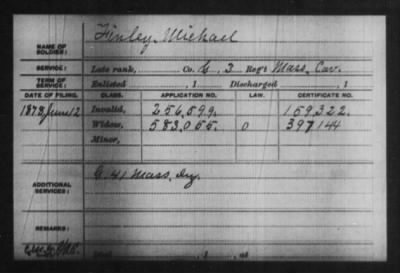 Finley, Michael
NAME OF SOLDIER:
SERVICE: Late rank, Co. C, 3 Reg't Mass. Cav.
TERM OF SERVICE: Enlisted , 1 Discharged , 1
DATE OF FILING. CLASS. APPLICATION NO. LAW. CERTIFICATE NO.
1878 June 12 Invalid, 256,599. 159322.
Widow, 583,055 0 397144
Minor,
ADDITIONAL SERVICES: G. 41 Mass. Inf.
REMARKS: